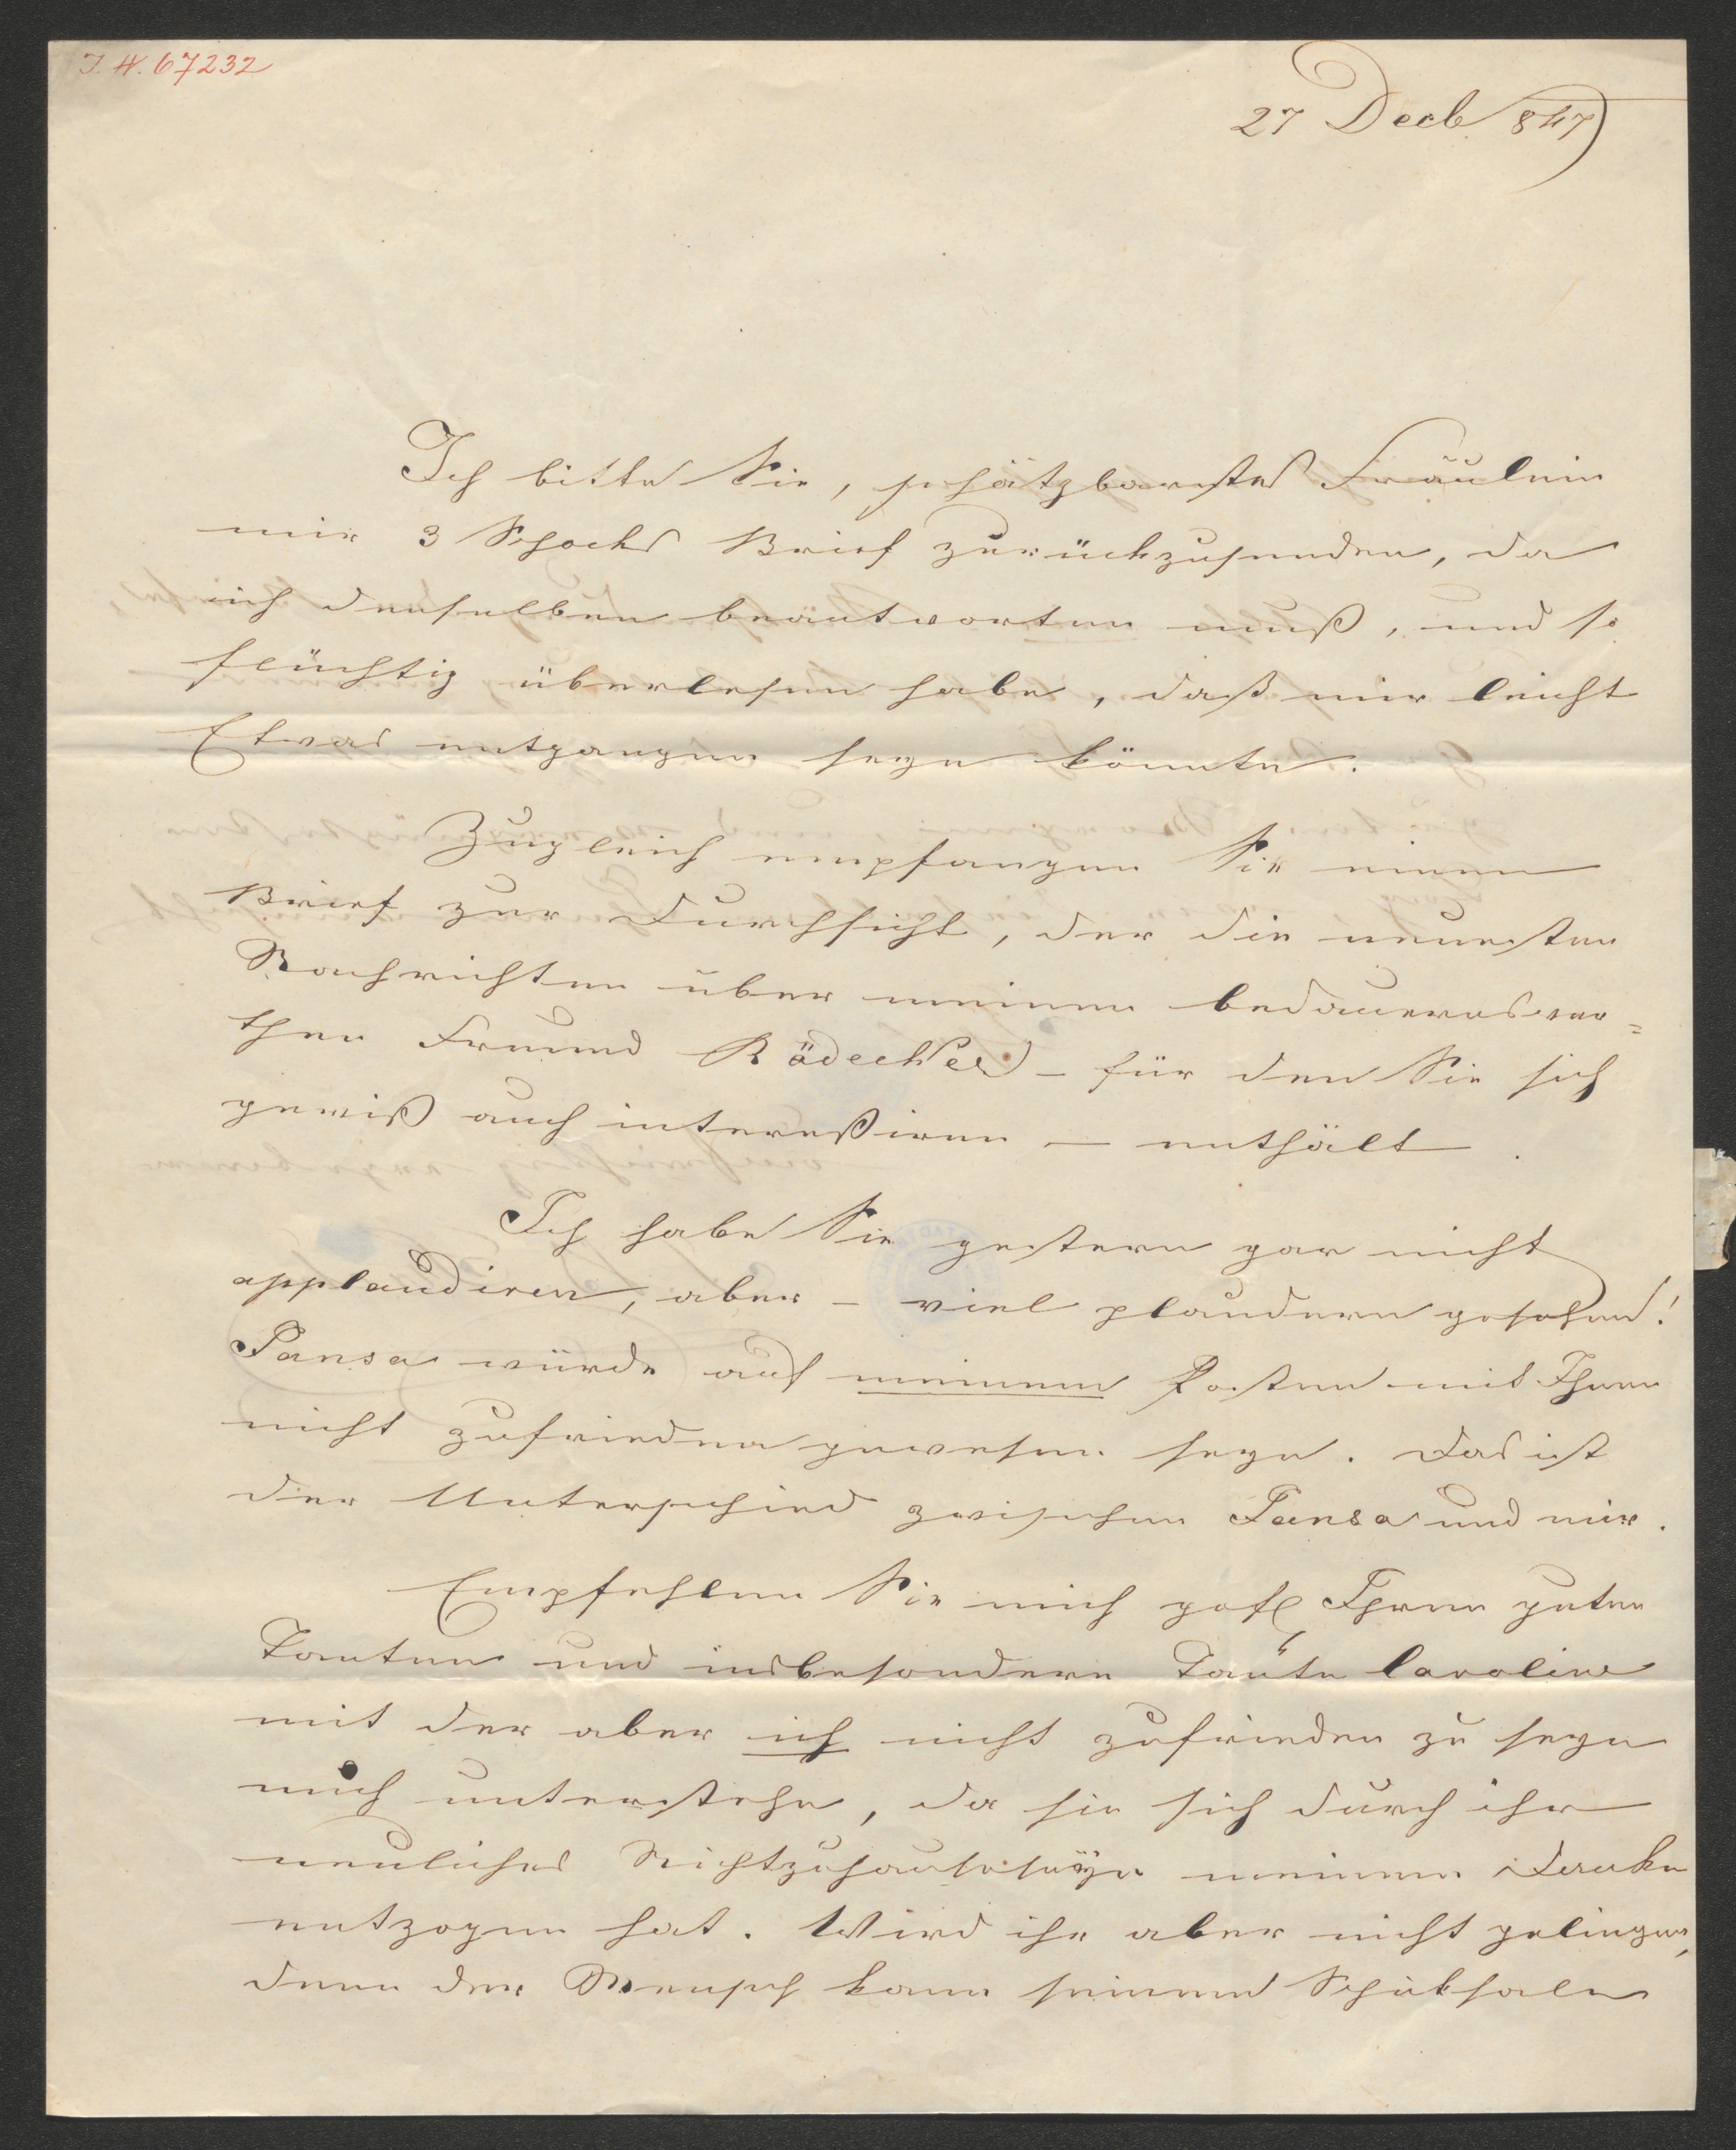 I. N. 67232
27 Decb 847
Ich bitte Sie, schätzbarstes Fräulein
mir Schocks Brief zurückzusenden, da
ich denselben beantworten muß, und so
flüchtig überlesen habe, daß mir leicht
Etwas entgangen seyn könnte.
Zugleich empfangen Sie einen
Brief zur Durchsicht, der die neuesten
Nachrichten über meinen bedauernswer=
then Freund – für den Sie sich
gewiß auch intereßiren – enthält.
Ich habe Sie gestern gar nicht
applaudiren, aber – viel plaudern gesehen!
Pansa würde auf meinem Posten mit Ihnen
nicht zufrieden gewesen seyn. Das ist
der Unterschied zwischen Pansa und mir.
Empfehlen Sie mich gefl Ihren guten
Tanten und insbesondere Tante Caroline
mit der aber ich nicht zufrieden zu seyn
mich unterstehe, da sie sich durch ihr
neuliches Nichtzuhauseseyn meinem Danke
entzogen hat. Wird ihr aber nicht gelingen,
denn der Mensch kann seinem Schiksale